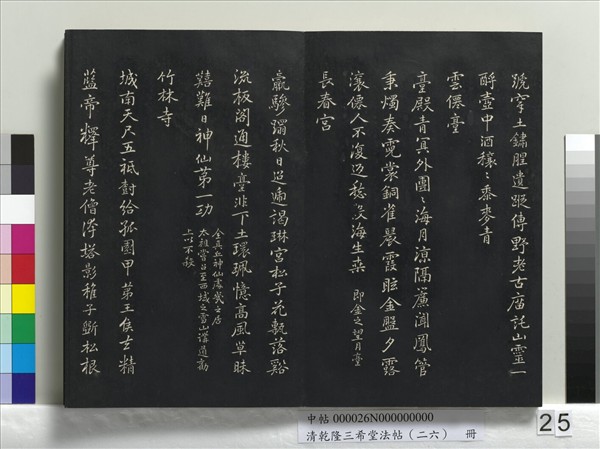 號穿土鏽腥遺蹤傳野老古庙託山靈一
酹壺中酒穟穟黍麥青
雲僊臺
臺殿青冥外團團海月涼隔簾聞鳳管
秉燭奏霓裳銅雀嚴霞
金盤夕露
瀼僊人不復
愁
海生桒 即金之望月臺
長春宮
驂溺秋日迢遍謁琳宮松子花甎落谿
流板閣通樓臺非下土環珮憶高風草昧
囏難日神仙第一功
全真丘神仙處機之居
太祖嘗召至西域之雪山講道勸
上以不殺
竹林寺
城南天尺五祇
對給孤園甲第王侯去精
藍帝釋尊老僧
塔影稚子斷松根
中帖 000026N000000000
清乾隆三希堂法帖（二六） 冊
25